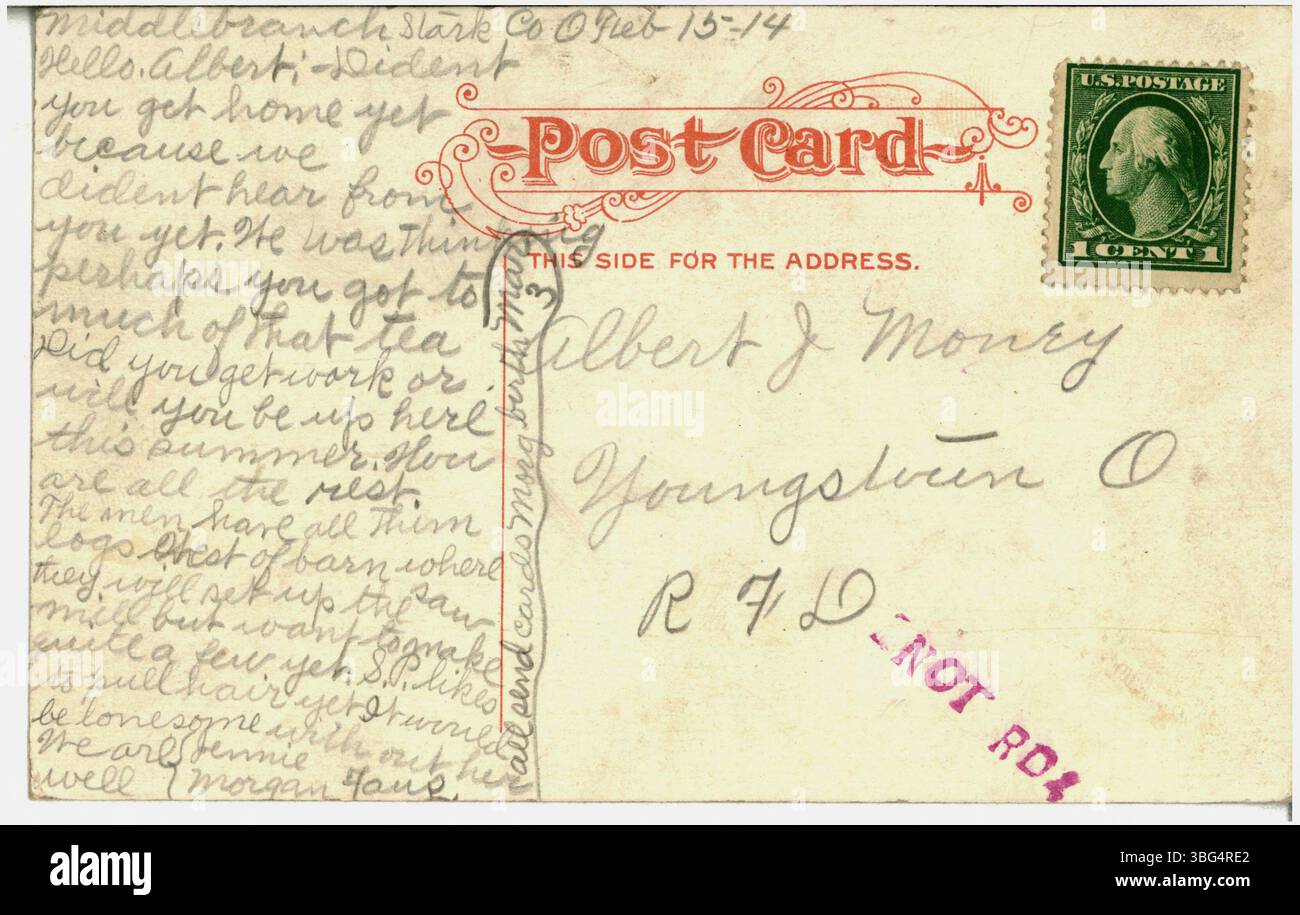 Middlebranch Stark Co O Feb 15-14
Hello. Albert; - Dident
you get home yet
because we
dident hear from
you yet. We was thinking
perhaps you got to
much of that tea
Did you get work or
will you be up here
this summer. How
are all the rest.
The men have all them
logs West of barn where
they will set up the saw
mill but want to make
quite a few yet. S.P. likes
to pull hair yet It would
be lonesome with out her
We are Jennie
well Morgan Faus.
all send cards Morg birth Mar
3
Post Card
THIS SIDE FOR THE ADDRESS.
U.S. POSTAGE
1 CENT 1
Albert J Money
Youngstown O
R F D
NOT RD
alamy
Image ID: 3BG4RE2
www.alamy.com